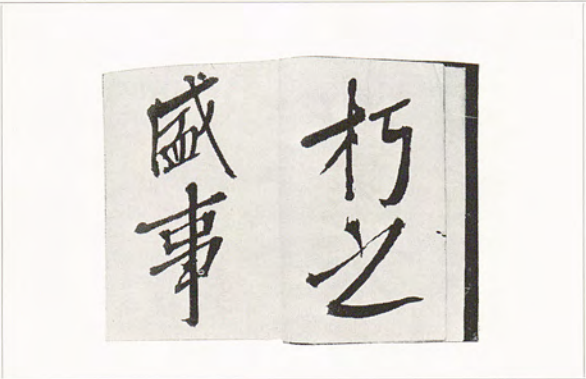 朽之
盛事